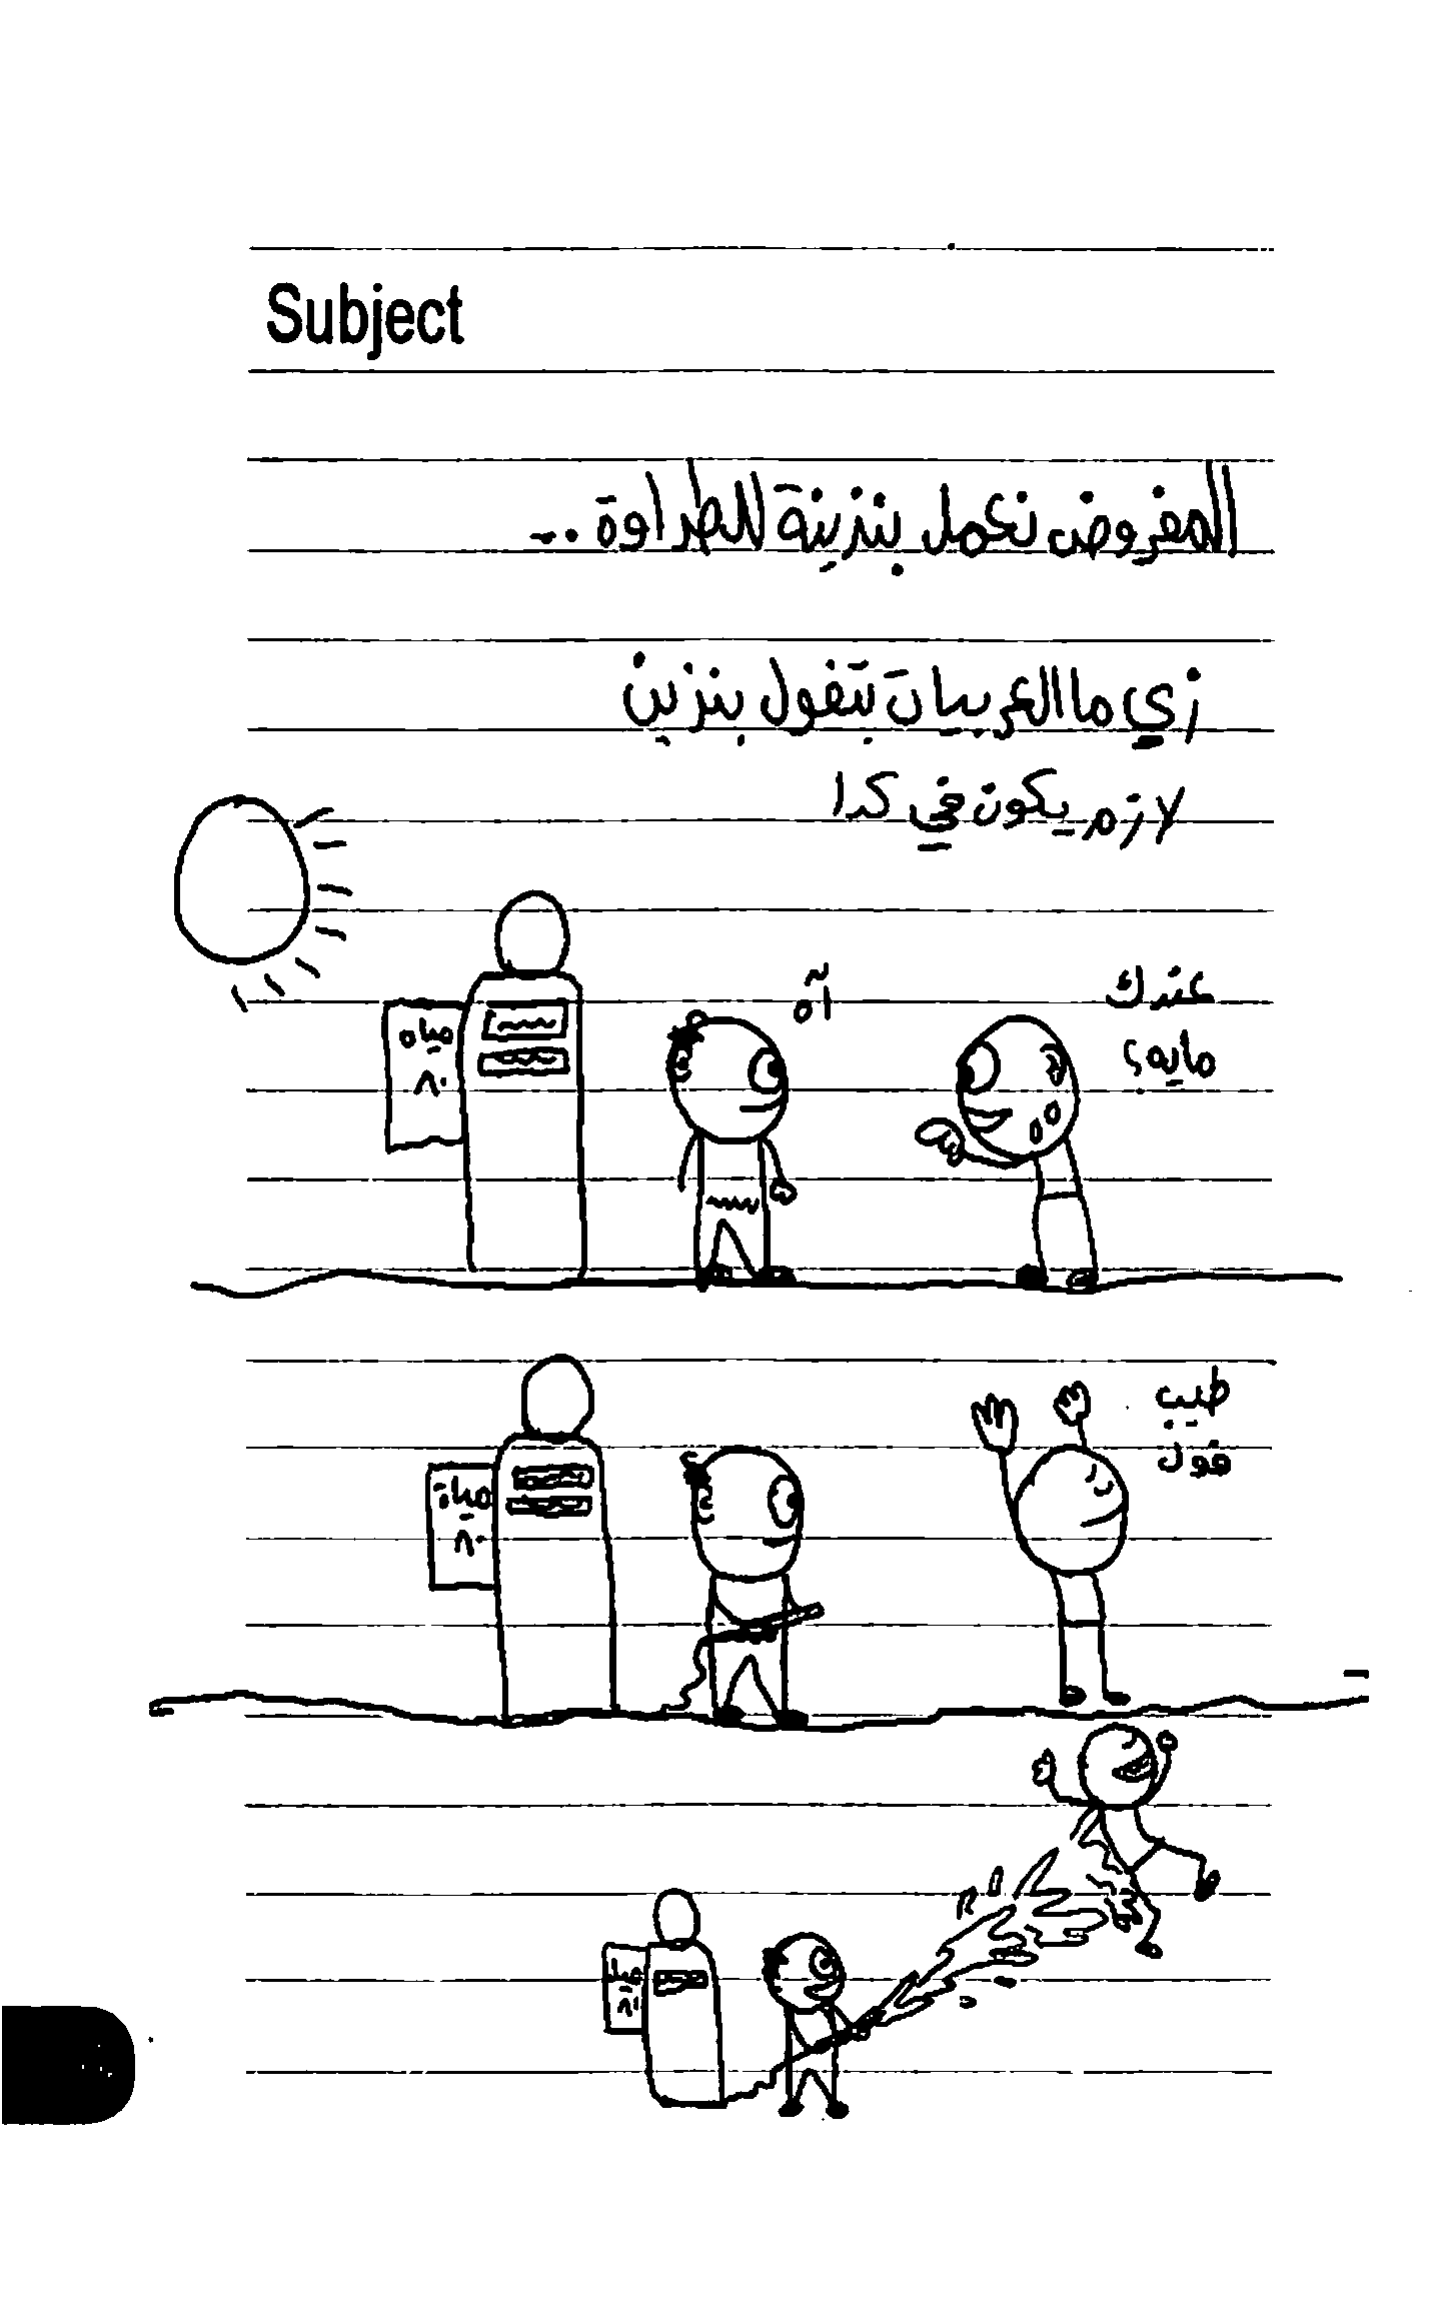 Subject
المفروض نعمل بنزينة للطراوة ..
زي ما العربيات بتفول بنزين
لازم يكون في كدا
عندك
مايه؟
آه
مياه
٨٠
طيب
فول
مياة
٨٠
مياة
٨٠